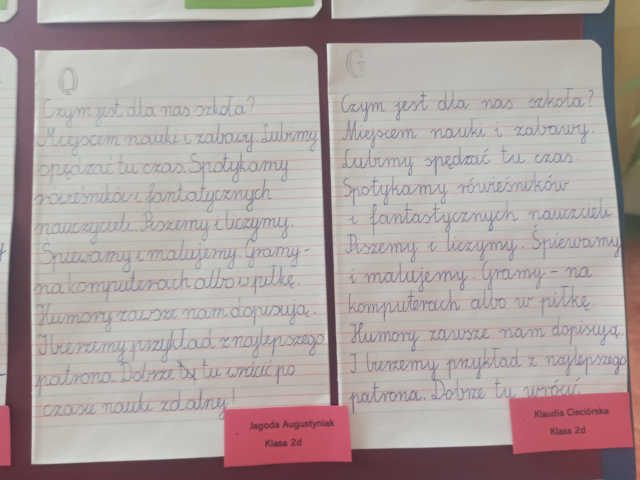 O
Czym jest dla nas szkoła?
Miejscem nauki i zabawy. Lubimy
spędzać tu czas. Spotykamy
rówieśników i fantatycznych
nauczycieli. Piszemy i liczymy.
Śpiewamy i malujemy. Gramy -
na komputerach albo w piłkę.
Humory zawsze nam dopisują.
I bierzemy przykład z najlepszego
patrona. Dobrze tu wrócić po
czasie nauki zdalnej!
Jagoda Augustyniak
Klasa 2d
G
Czym jest dla nas szkoła?
Miejscem nauki i zabawy.
Lubimy spędzać tu czas.
Spotykamy rówieśników
i fantastycznych nauczcieli.
Piszemy i liczymy. Śpiewamy
i malujemy. Gramy - na
komputerach albo w piłkę.
Humory zawsze nam dopisują.
I bierzemy przykład z najlepszego
patrona. Dobrze tu wrócić
Klaudia Cieciórska
Klasa 2d